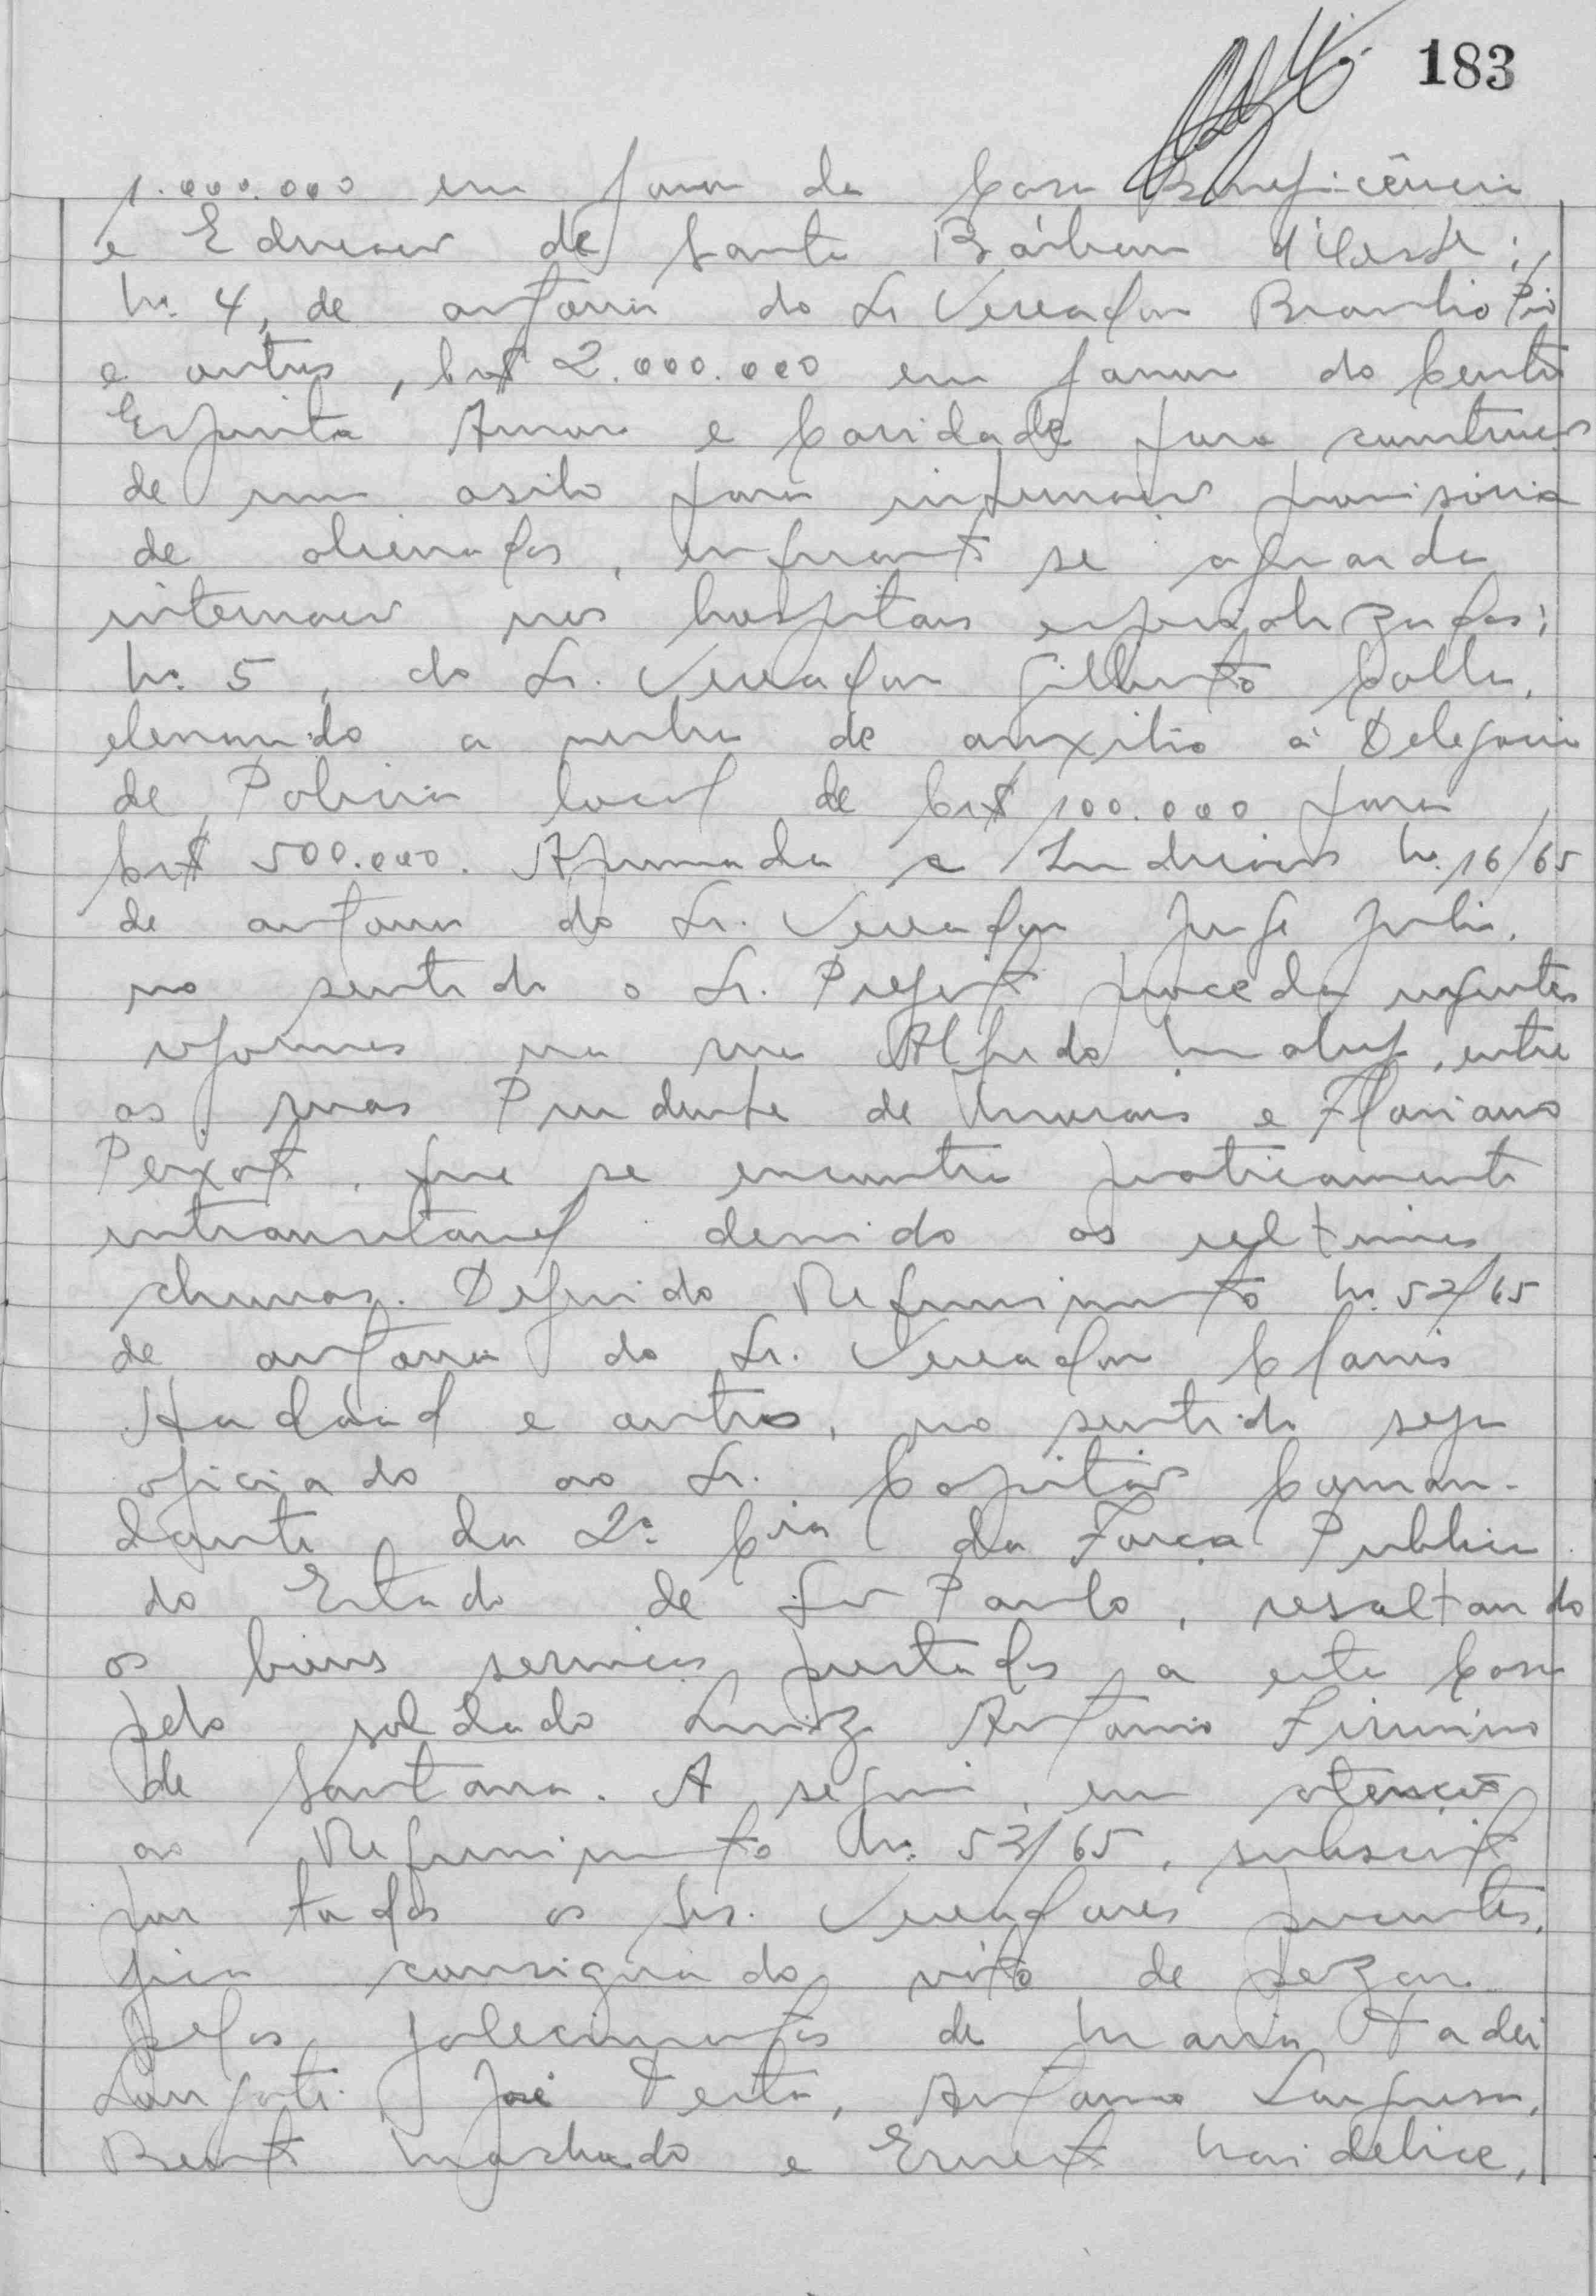 183
1.000.000 em favor da Casa Beneficência
e Educação de Santa Bárbara d'Oeste;
nº 4, de autoria do Sr Vereador Braulio Pio
e outros, Cr$ 2.000.000 em favor do Centro
Espirita Amor e Caridade para construção
de um asilo para internação provisoria
de alienados, enquanto se aguarda
internação nos hospitais especializados;
nº 5, do Sr. Vereador Gilberto
elevando a verba de auxilio à Delegacia
de Policia local de Cr$ 100.000 para
Cr$ 500.000. Aprovada a Indicação nº 16/65
de autoria do Sr. Vereador Jorge Julio,
no sentido o Sr. Prefeito proceda urgentes
reformas na rua Alfredo Maluf, entre
as ruas Prudente de Moraes e Floriano
Peixoto, que se encontra praticamente
intransitavel devido as ultimas
chuvas. Deferido Requerimento nº 52/65
de autoria do Sr. Vereador Clovis
Haddad e outros, no sentido seja
oficiado ao Sr. Capitão Coman-
dante da 2ª Cia da Força Publica
do Estado de São Paulo, resaltando
os bons serviços prestados a esta Casa
pelo soldado Luiz Antonio Firmino
de Santana. A seguir, em atenção
ao Requerimento nº 53/65, subscrito
por todos os Srs. Vereadores presentes,
fica consignado vóto de pezar
pelos falecimentos de Maria Tadei
José Testa, Antonio
Bento Machado e Ernesto